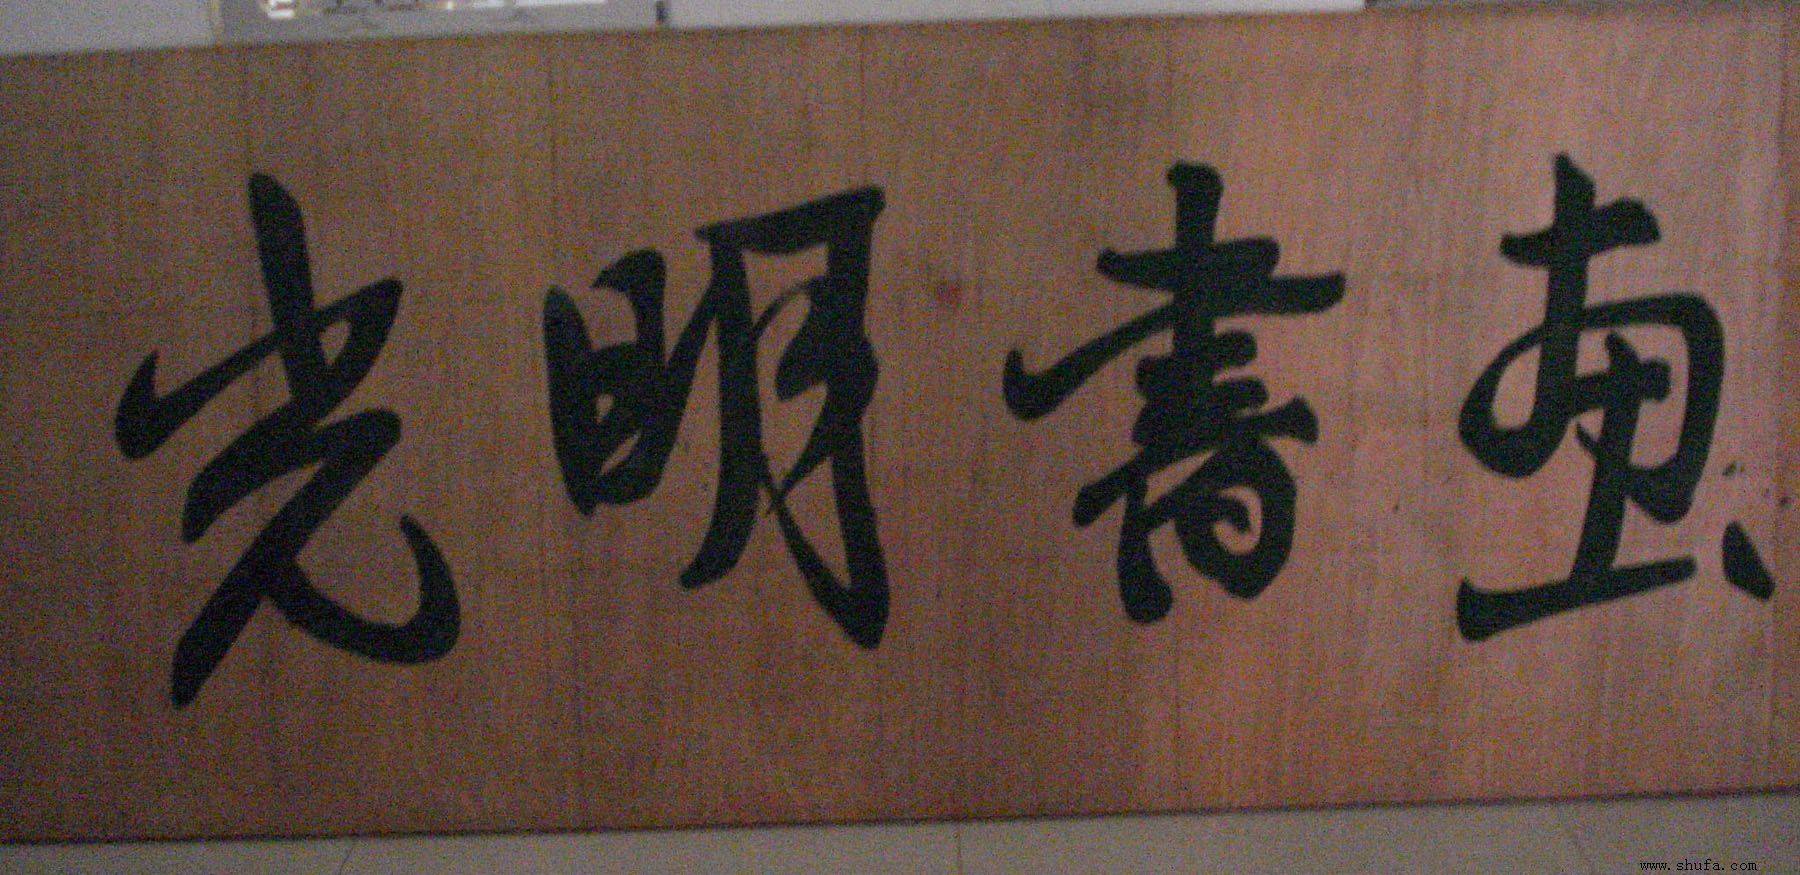 光明書画
www.shufa.com